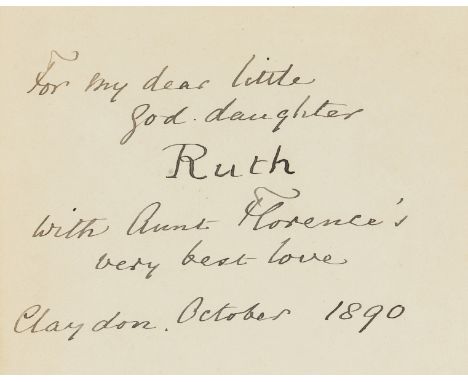 For my dear little
God. daughter
Ruth
with Aunt Florence's
very best love
Claydon. October 1890